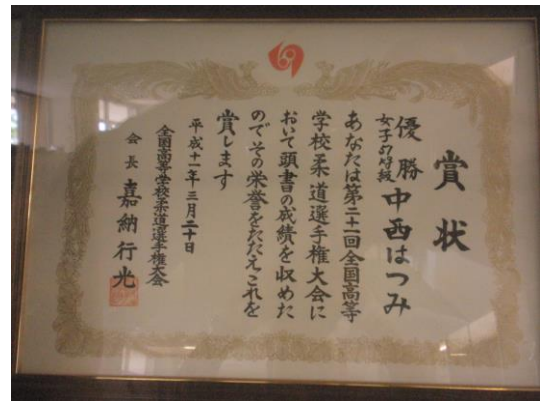 賞状
優勝 中西はつみ
女子57kg級
あなたは第二十一回全国高等
学校柔道選手権大会に
おいて頭書の成績を収めた
のでその栄誉をたたえこれを
賞します
平成十一年三月二十日
全国高等学校柔道選手権大会
会長 嘉納行光